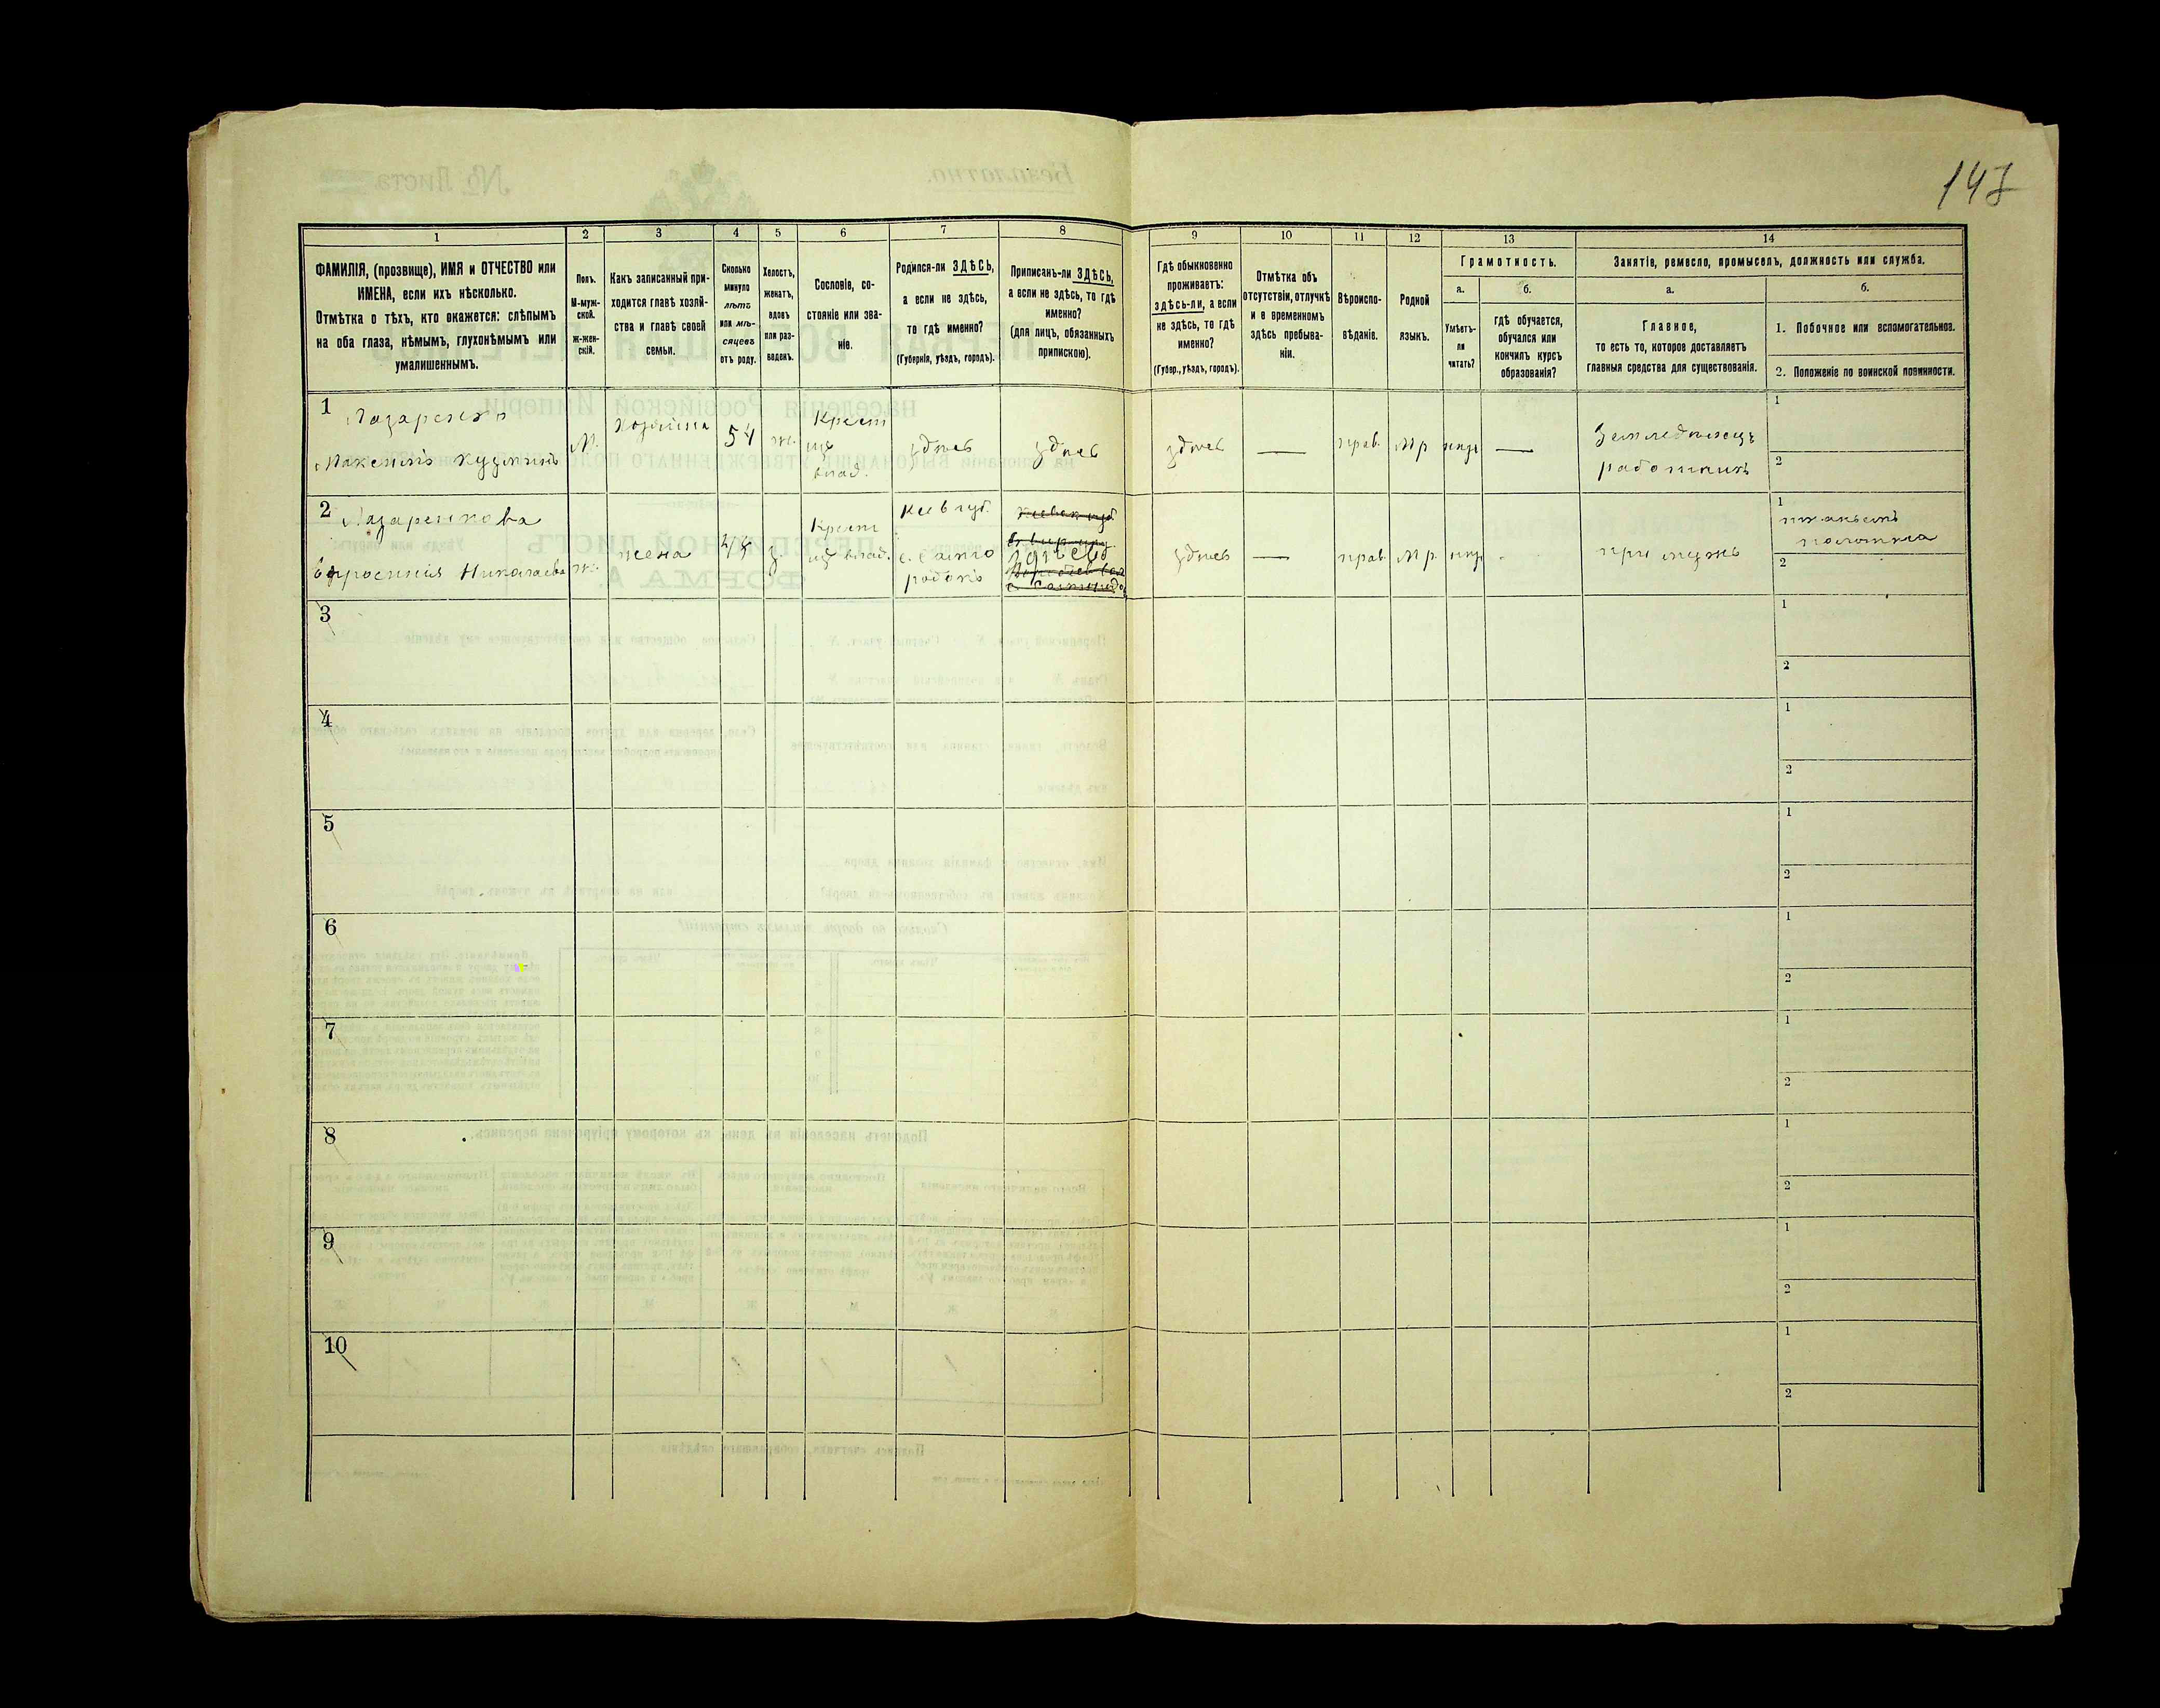 147
1
2
3
4
5
6
7
8
9
10
11
12
13
14
ФАМИЛІЯ, (прозвище), ИМЯ и ОТЧЕСТВО или
ИМЕНА, если ихъ нѣсколько.
Отмѣтка о тѣхъ, кто окажется: слѣпымъ
на оба глаза, нѣмымъ, глухонѣмымъ или
умалишеннымъ.
Полъ.
М-муж-
ской.
Ж-жен-
скій.
Какъ записанный при-
ходится главѣ хозяй-
ства и главѣ своей
семьи.
Сколько
минуло
лѣтъ
или мѣ-
сяцевъ
отъ роду.
Холостъ,
женатъ,
вдовъ
или раз-
веденъ.
Сословіе, со-
стояніе или зва-
ніе.
Родился-ли ЗДѢСЬ,
а если не здѣсь,
то гдѣ именно?
(Губернія, уѣздъ, городъ).
Приписанъ-ли ЗДѢСЬ,
а если не здѣсь, то гдѣ
именно?
(для лицъ, обязанныхъ
припискою).
Гдѣ обыкновенно
проживаетъ:
здѣсь-ли, а если
не здѣсь, то гдѣ
именно?
(Губер., уѣздъ, городъ).
Отмѣтка объ
отсутствіи, отлучкѣ
и о временномъ
здѣсь пребыва-
ніи.
Вѣроиспо-
вѣданіе.
Родной
языкъ.
Грамотность.
а.
б.
Умѣетъ-
ли
читать?
гдѣ обучается,
обучался или
кончилъ курсъ
образованія?
Занятіе, ремесло, промыселъ, должность или служба.
а.
б.
Главное,
то есть то, которое доставляетъ
главныя средства для существованія.
1. Побочное или вспомогательное.
2. Положеніе по воинской повинности.
1
Лазаренко
Максимъ Кузминъ
М.
хозяинъ
54
ж.
Крест
изъ
влад.
здѣсь
здѣсь
здѣсь
—
прав.
Мр
—
Земледѣлецъ
работникъ
1
2
2
Лазаренкова
Ефросинія Николаева
ж.
жена
з.
Крест
изъ влад.
Кіев губ.
родокъ
здѣсь
—
прав.
Мр.
-
при мужѣ
1
полотна
2
3
1
2
4
1
2
5
1
2
6
1
2
7
1
2
8
1
2
9
1
2
10
1
2